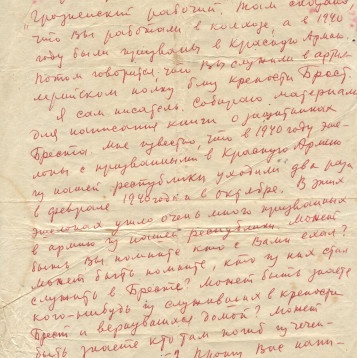 "Грозненский рабочий". Там сказано,
что Вы работали в колхозе, а в 1940
году были призваны в Красную Армию.
Потом говорится, что Вы служили в артил-
лерийском полку близ крепости Брест.
Я сам писатель. Собираю материалы
для написания книги о защитниках
Бреста. Мне известно, что в 1940 году эше-
лоны с призванными в Красную Армию
из нашей республики уходили два раза
в феврале 1940 года и в октябре. В этих
эшелонах ушло очень много призванных
в армию из нашей республики. Может
быть Вы помните кто с Вами ехал?
Может быть помните, кто из них стал
служить в Бресте? Может быть знаете
кого-нибудь из служивших в крепости
Брест и вернувшихся домой? Может
быть знаете кто там погиб из чечен-
Прошу Вас напи-